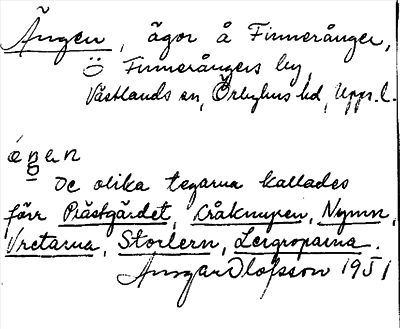 Ängen, ägor å Finnerånger,
ö Finnerångers by,
Västlands sn, Örbyhus hd, Upps. l.
De olika tegarna kallades
förr Prästgärdet, Kråkmyren, Nymn,
Vretarna, Storlern, Lergroparna.
Ansgar Olofsson 1951